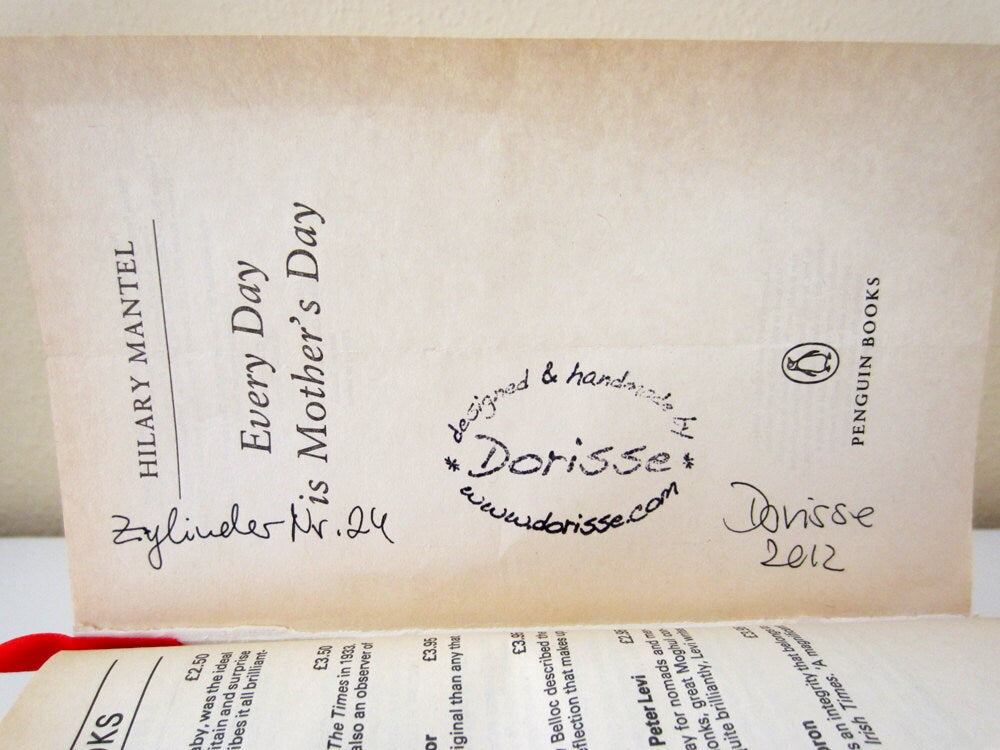 HILARY MANTEL
Every Day
is Mother's Day
PENGUIN BOOKS
designed & handmade
* Dorisse *
www.dorisse.com
Zylinder Nr. 24
Dorisse
2012
£2.50
aby, was the ideal
itain and surprise
ibes it all brilliant-
£3.50
The Times in 1933
also an observer of
£3.95
or
iginal than any that
Belloc described the
eflection that makes
Peter Levi
ay for nomads and
onks, great Moghul
uite brilliantly, Levi
yon
s an integrity that
Irish Times. 'A